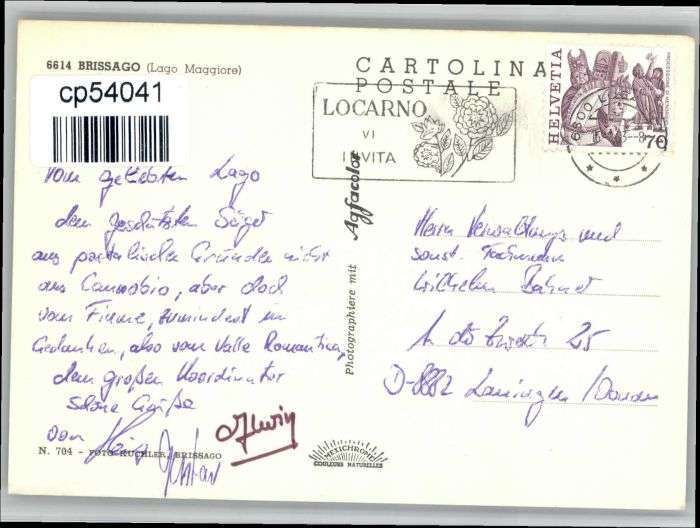 6614 BRISSAGO (Lago Maggiore)
cp54041
CARTOLINA
POSTALE
LOCARNO
VI
INVITA
HELVETIA
70
6600
Vom geliebten Lago
dem geschätzten Sänger
aus postalischen Gründen nicht
aus Cannobio, aber doch
vom Fiume, zumindest in
Gedanken, also vom Valle Romantica,
dem großen Koordinator
schöne Grüße
von
Photographiere mit Agfacolor
Herrn Verwaltungs und
sonst. Fachmann
Wilhelm
25
D-8882 Lauingen/Donau
N. 704 - FOTO KÜCHLER, BRISSAGO
MEXICHROME
COULEURS NATURELLES